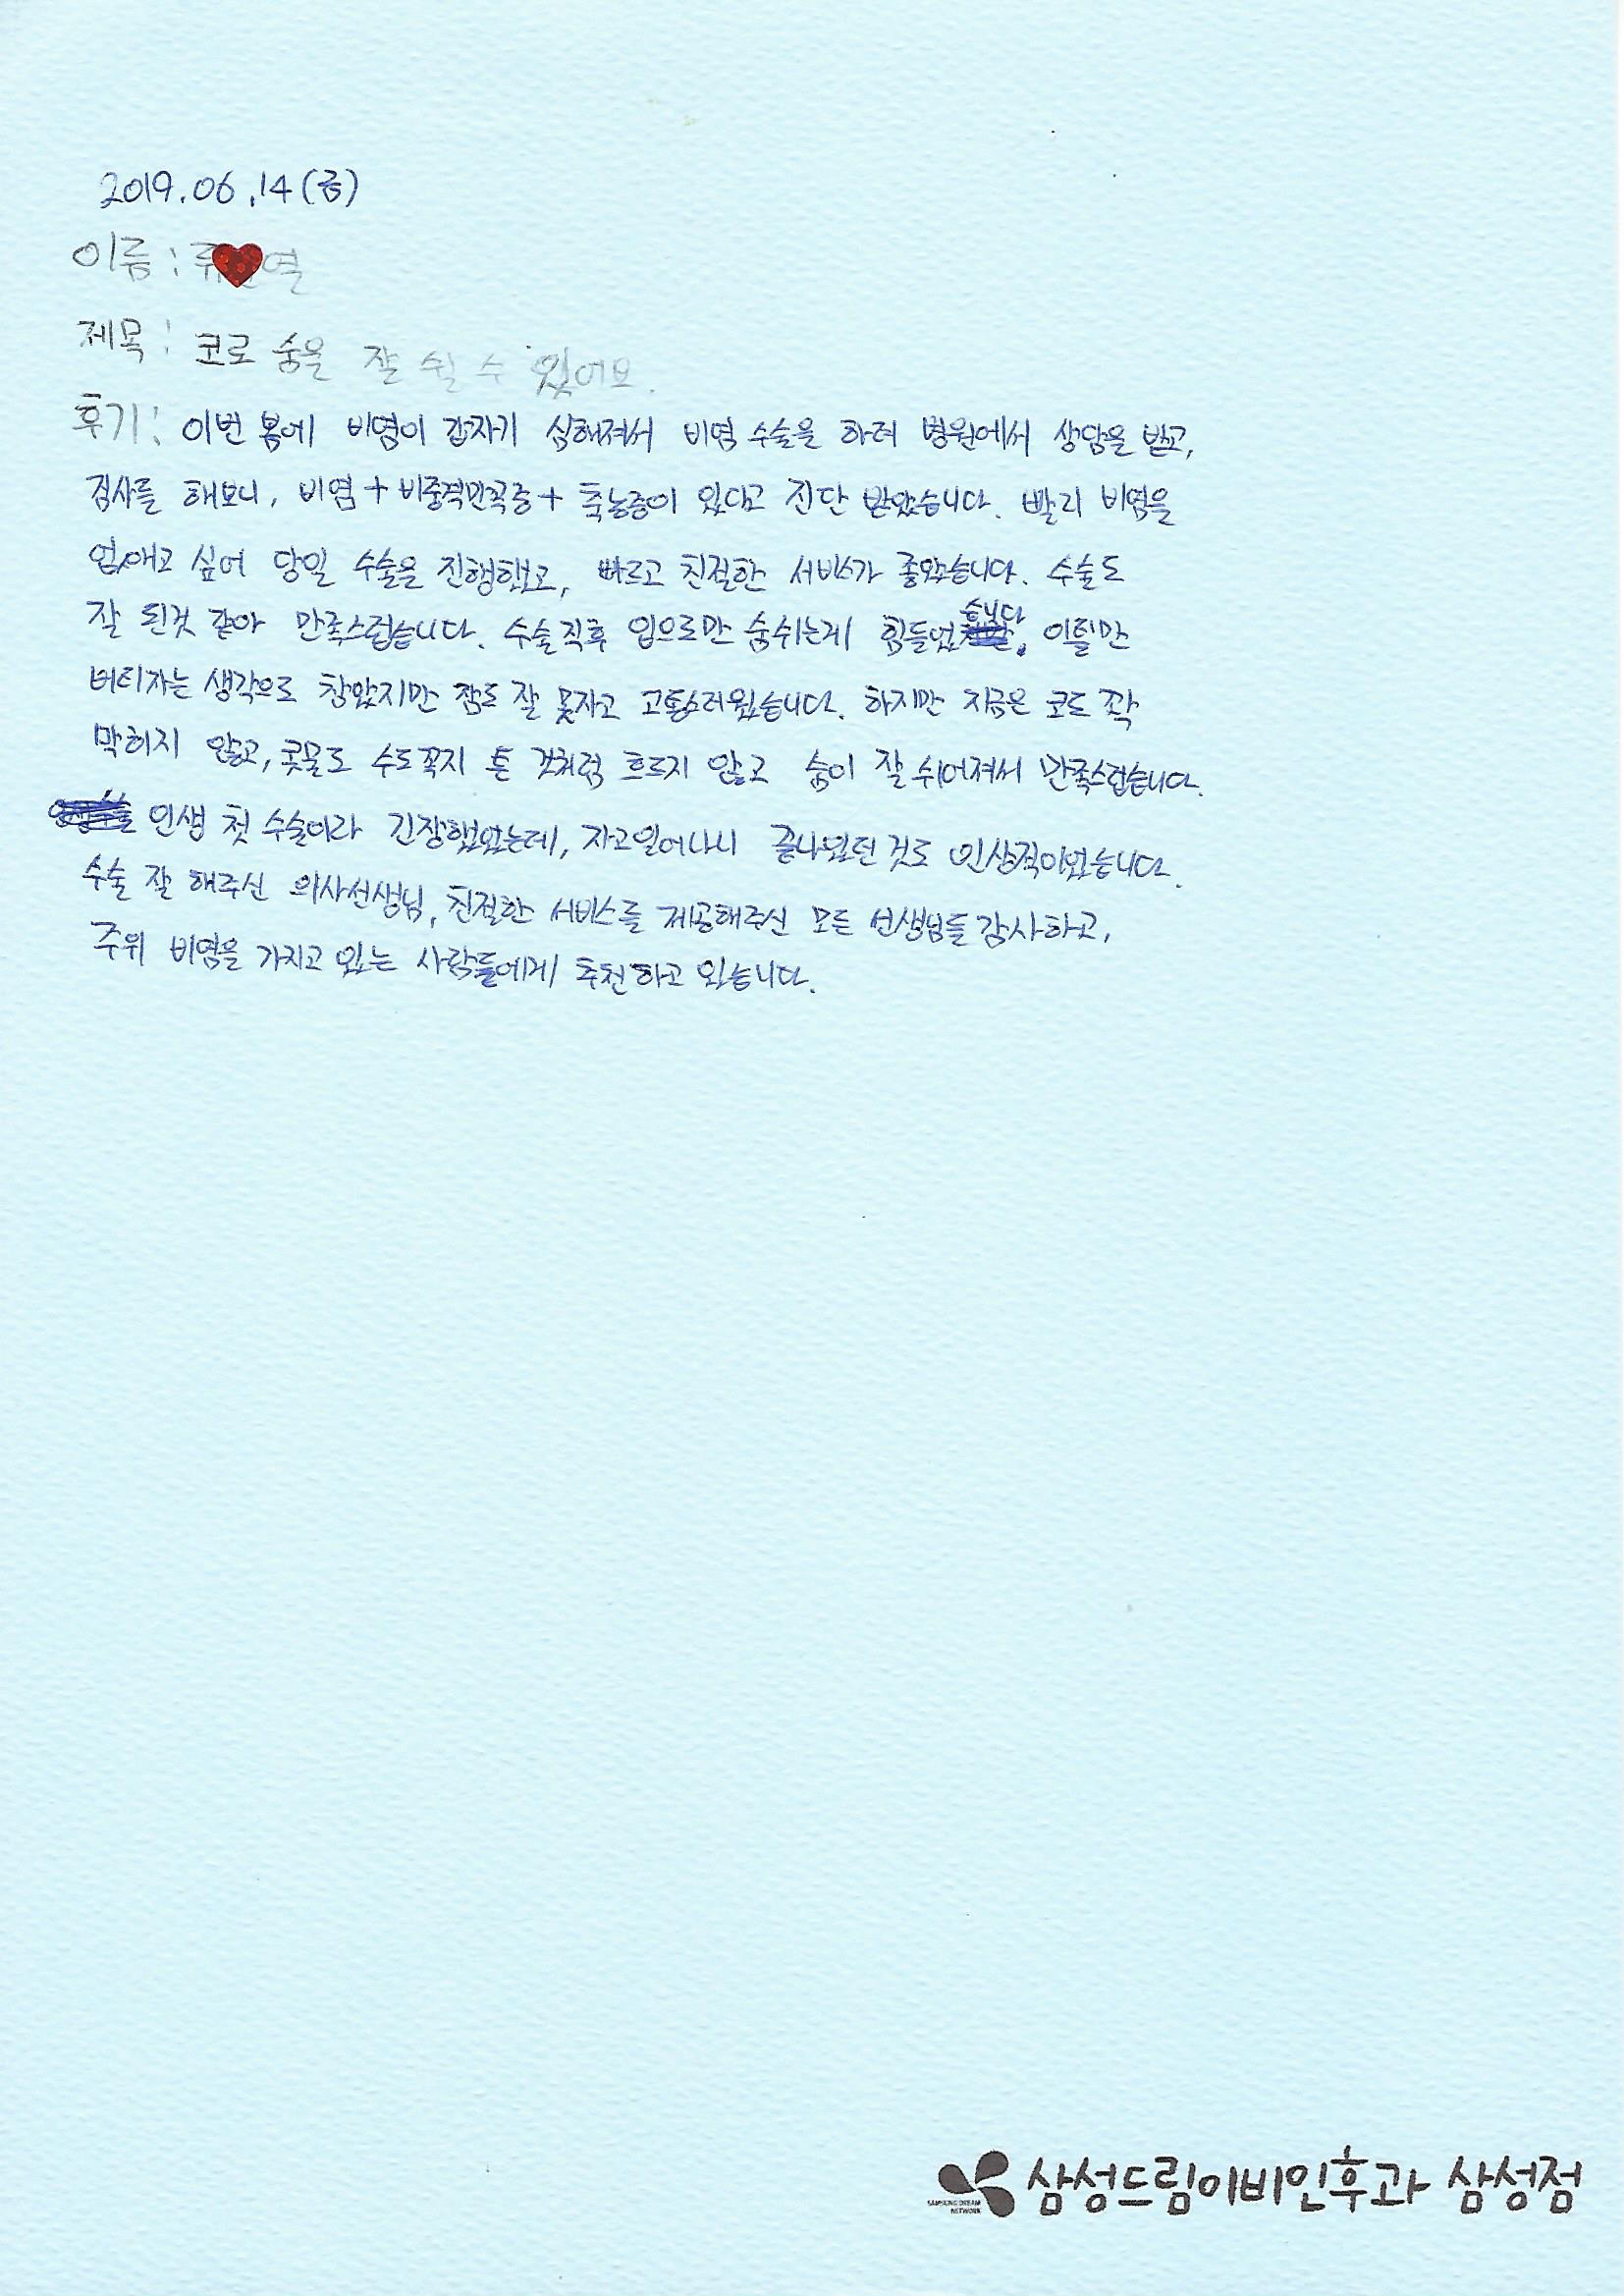 2019.06.14(금)
이름 : 류 열
제목 : 코로 숨을 잘 쉴 수 있어요.
후기 : 이번 봄에 비염이 갑자기 심해져서 비염 수술을 하려 병원에서 상담을 받고,
검사를 해보니, 비염+비중격만곡증+축농증이 있다고 진단 받았습니다. 빨리 비염을
없애고 싶어 당일 수술을 진행했고, 빠르고 친절한 서비스가 좋았습니다. 수술도
잘 된것 같아 만족스럽습니다. 수술직후 입으로만 숨쉬는게 힘들었습니다. 이틀만
버티자는 생각으로 참았지만 잠도 잘 못자고 고통스러웠습니다. 하지만 지금은 코도 꽉
막히지 않고, 콧물도 수도꼭지 튼 것처럼 흐르지 않고 숨이 잘 쉬어져서 만족스럽습니다.
인생 첫 수술이라 긴장했었는데, 자고일어나니 끝나있던 것도 인상적이었습니다.
수술 잘 해주신 의사선생님, 친절한 서비스를 제공해주신 모든 선생님들 감사하고,
주위 비염을 가지고 있는 사람들에게 추천하고 있습니다.
삼성드림이비인후과 삼성점
SAMSUNG DREAM
NETWORK